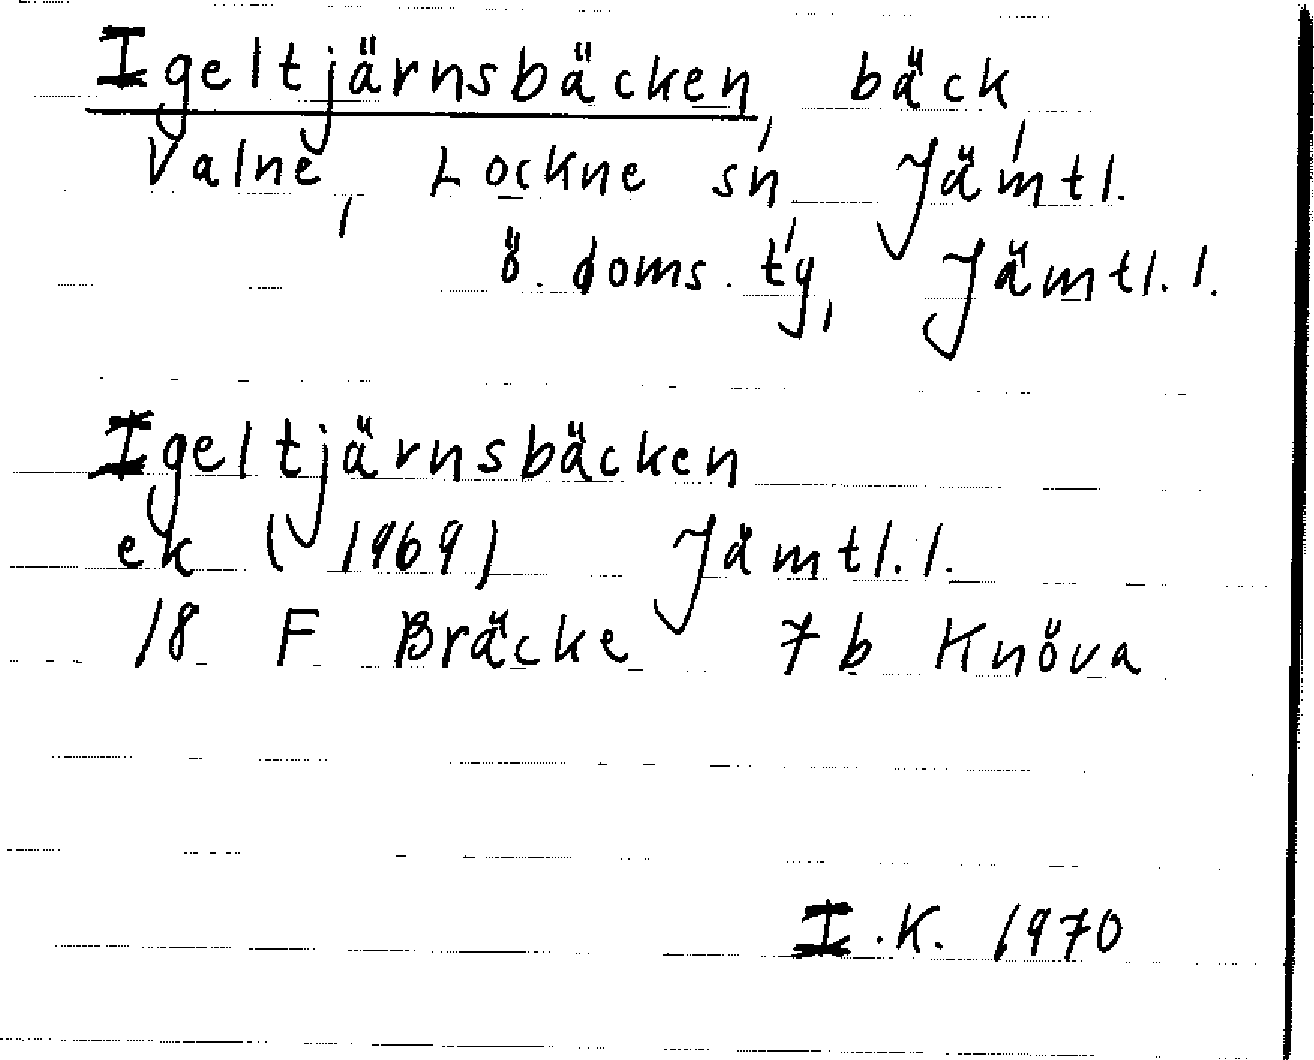 Igeltjärnsbäcken, bäck,
Valne, Lockne sn, Jämtl.
ö. doms. tg, Jämtl. l.
Igeltjärnsbäcken
ek (1969) Jämtl. l.
18 F Bräcke 7 b Knöva
I.K. 1970